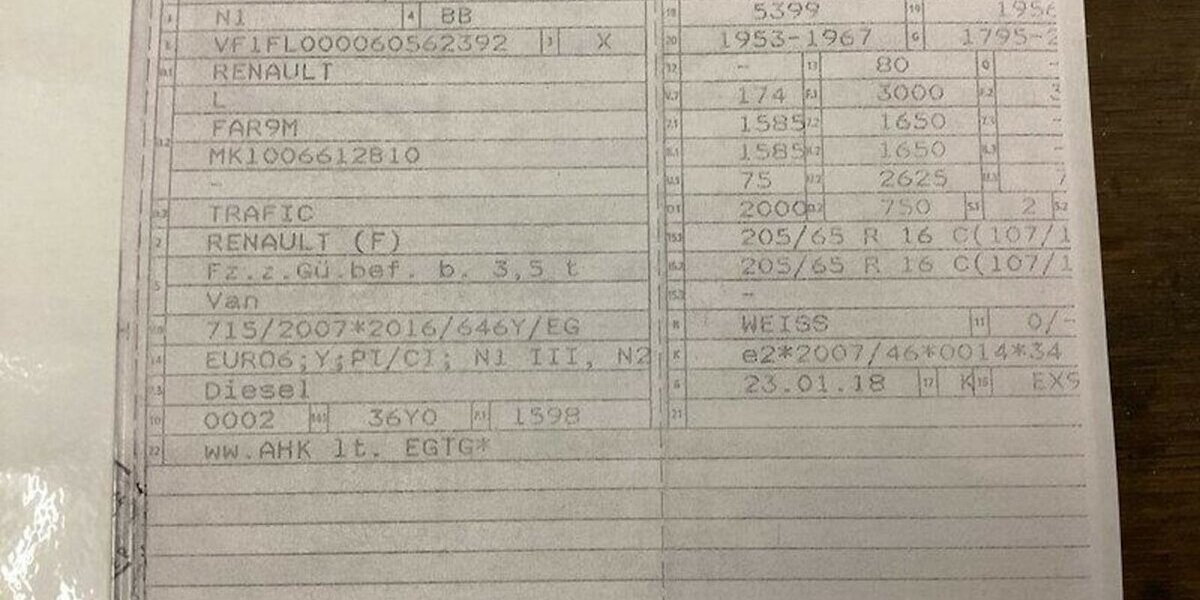 N1 4 BB
VF1FL000060562392 3 X
RENAULT
L
FAR9M
MK1006612B10
-
D.3 TRAFIC
2 RENAULT (F)
5 Fz.z.Gü.bef. b. 3,5 t
Van
V.9 715/2007*2016/646Y/EG
14 EURO6;Y;PI/CI; N1 III, N2
P.3 Diesel
10 0002 14.1 36Y0 P.1 1598
22 ww.AHK lt. EGTG*
18 5399 19 1956
20 1953-1967 G 1795-2
12 - 13 80 Q -
V.7 174 F.1 3000 F.2 3
7.1 1585 7.2 1650 7.3 -
8.1 1585 8.2 1650 8.3 -
U.1 75 U.2 2625 U.3
O.1 2000 O.2 750 S.1 2 S.2
15.1 205/65 R 16 C(107/1
15.2 205/65 R 16 C(107/1
15.3 -
R WEISS 11 0/-
K e2*2007/46*0014*34
6 23.01.18 17 K 16 EXS
21